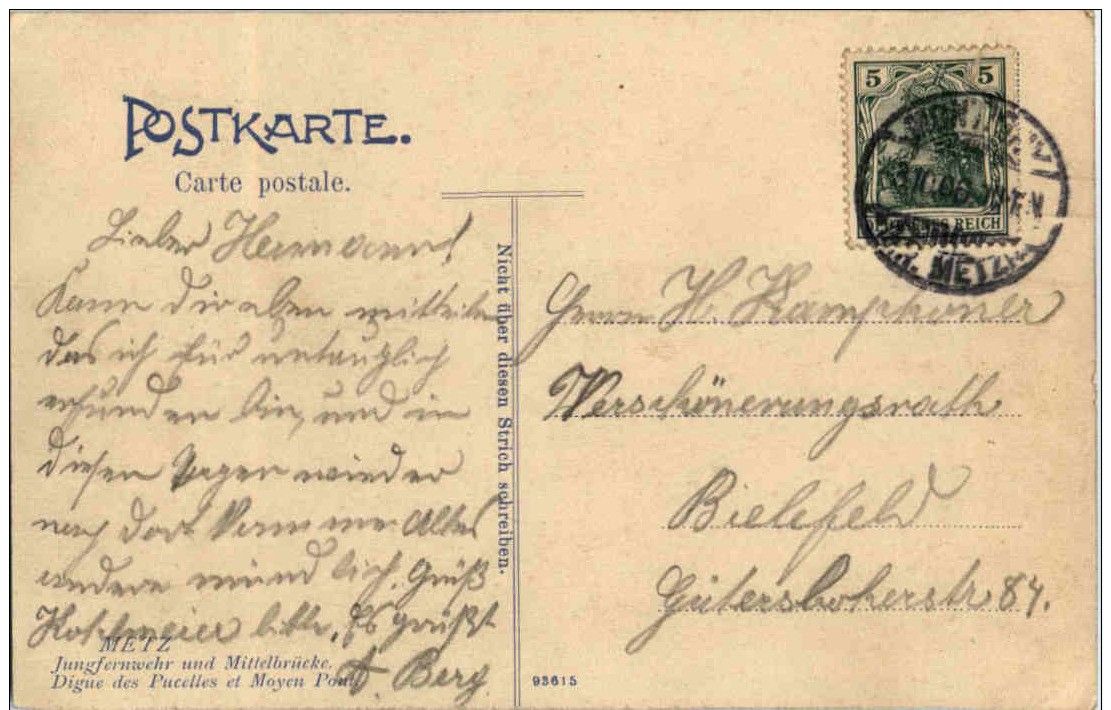 POSTKARTE.
Carte postale.
Lieber Hermann!
Kann dir eben mitteilen
das ich für untauglich
erfunden bin, und in
diesen Tagen wieder
nach dort komme Alles
andere mündlich. Grüß
bitte, Es grüßt
A. Berg
METZ
Jungfernwehr und Mittelbrücke.
Digue des Pucelles et Moyen Pont
Nicht über diesen Strich schreiben.
5 5
REICH
METZ
Herrn H. Kamphoner
Verschönerungsrath
Bielefeld
Gütersloherstr 84.
93615